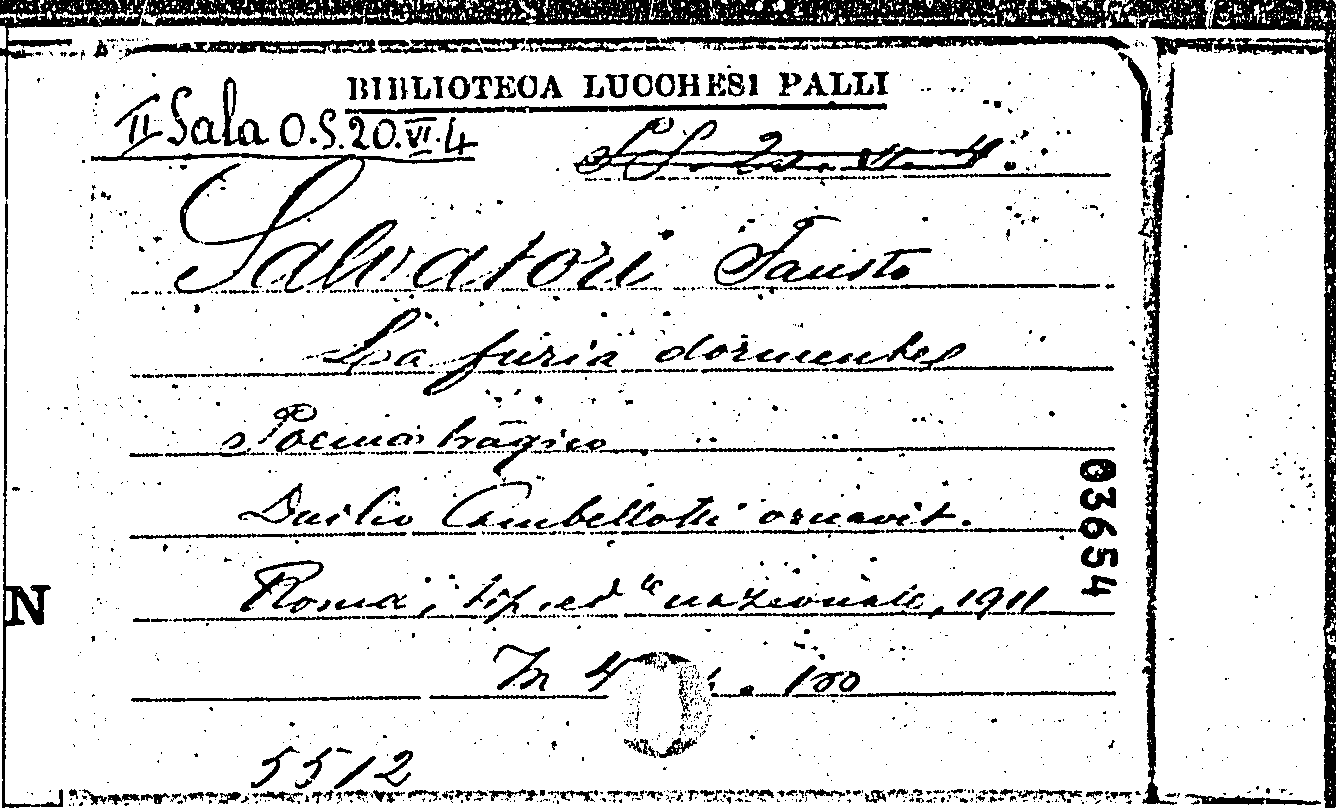 BIBLIOTECA LUCCHESI PALLI
II Sala O.S.20.VI.4
Salvatori Fausto
La furia dormente
Poema tragico
Duilio Cambellotti ornavit.
Roma, tip. ed "nazionale, 1911
In 4 . 100
03654
N
5512